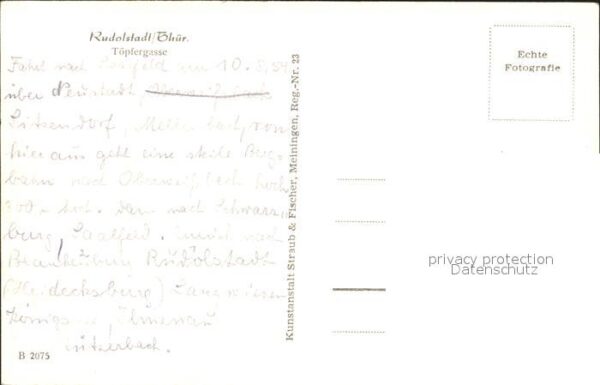 Rudolstadt/Thür.
Töpfergasse
Fahrt nach Saalfeld am 10.8.59
über Neustadt,
Sitzendorf, Mellenbach, von
hier aus geht eine steile Berg-
bahn nach Oberweißbach hoch,
800 m hoch. dann nach Schwarz-
burg, Saalfeld. zurück nach
Rudolstadt
(Heidecksburg) Langewiesen
Königsee, Ilmenau
B 2075
Kunstanstalt Straub & Fischer, Meiningen, Reg.-Nr. 23
Echte
Fotografie
privacy protection
Datenschutz